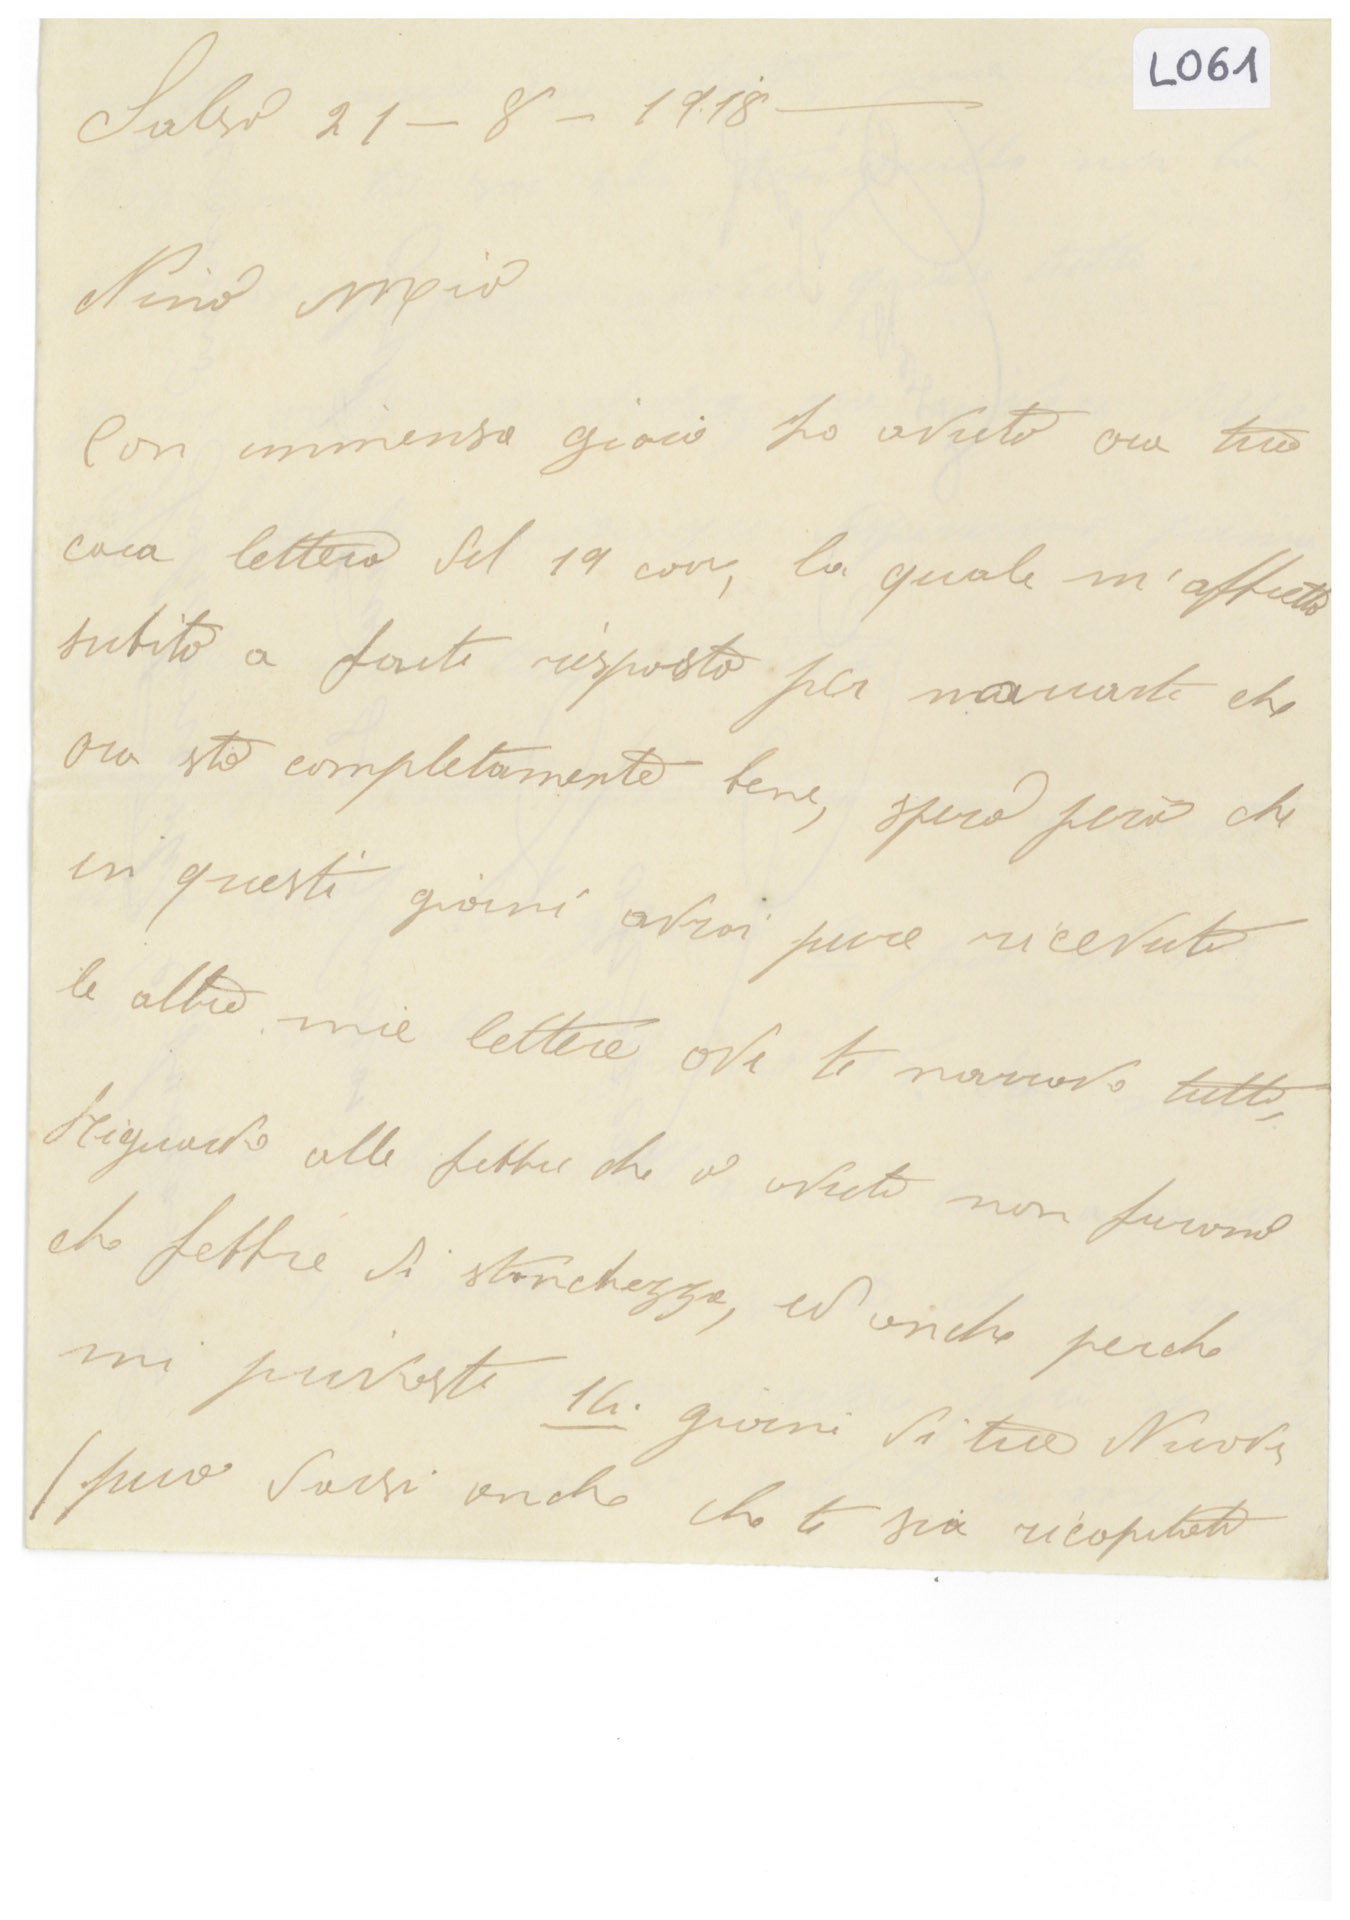 L061
Salsò 21 - 8 - 1918
Nino Mio
Con immensa gioia ho avuto ora tua
cara lettera del 19 corr, la quale m'affretto
subito a farti risposta per narrarti che
ora sto completamente bene, spero però che
in questi giorni avrai pure ricevute
le altre mie lettere ove ti narravo tutto,
Riguardo alle febbri che ò avute non furono
che febbre di stanchezza, ed anche perche
mi privasti 14. giorni di tue Nuove
(puo darsi anche che ti sia ricapitato